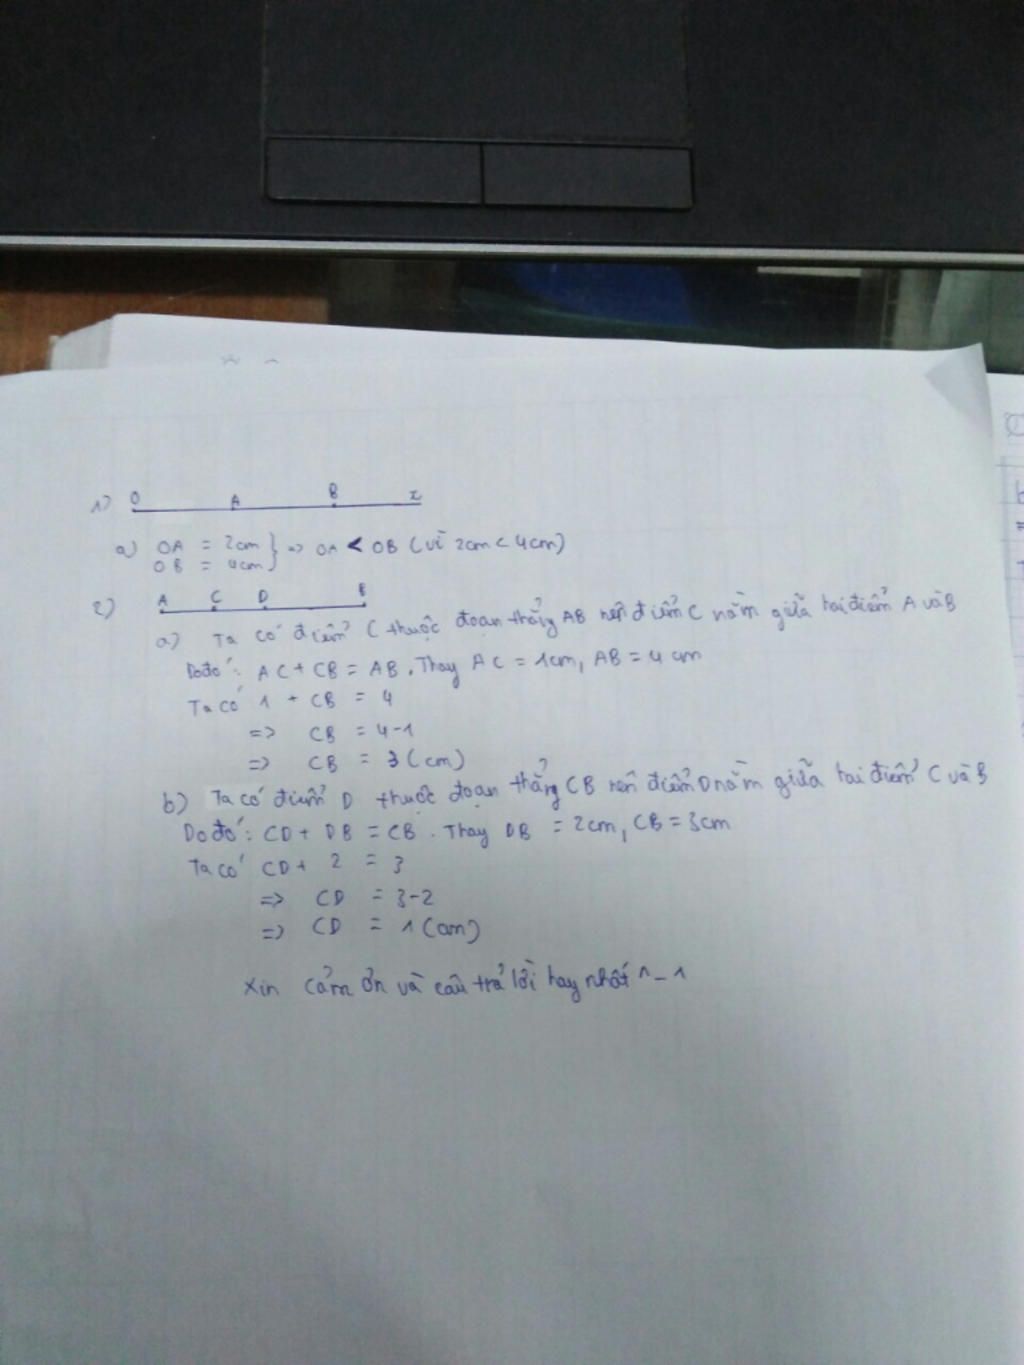 1) O A B x
a) OA = 2cm } => OA < OB (vì 2cm < 4cm)
OB = 4cm
2) A C D B
a) Ta có điểm C thuộc đoạn thẳng AB nên điểm C nằm giữa hai điểm A và B
Do đó: AC + CB = AB. Thay AC = 1cm, AB = 4 cm
Ta có 1 + CB = 4
=> CB = 4-1
=> CB = 3 (cm)
b) Ta có điểm D thuộc đoạn thẳng CB nên điểm D nằm giữa hai điểm C và B
Do đó: CD + DB = CB. Thay DB = 2cm, CB = 3cm
Ta có CD + 2 = 3
=> CD = 3-2
=> CD = 1 (cm)
Xin cảm ơn và câu trả lời hay nhất ^_^